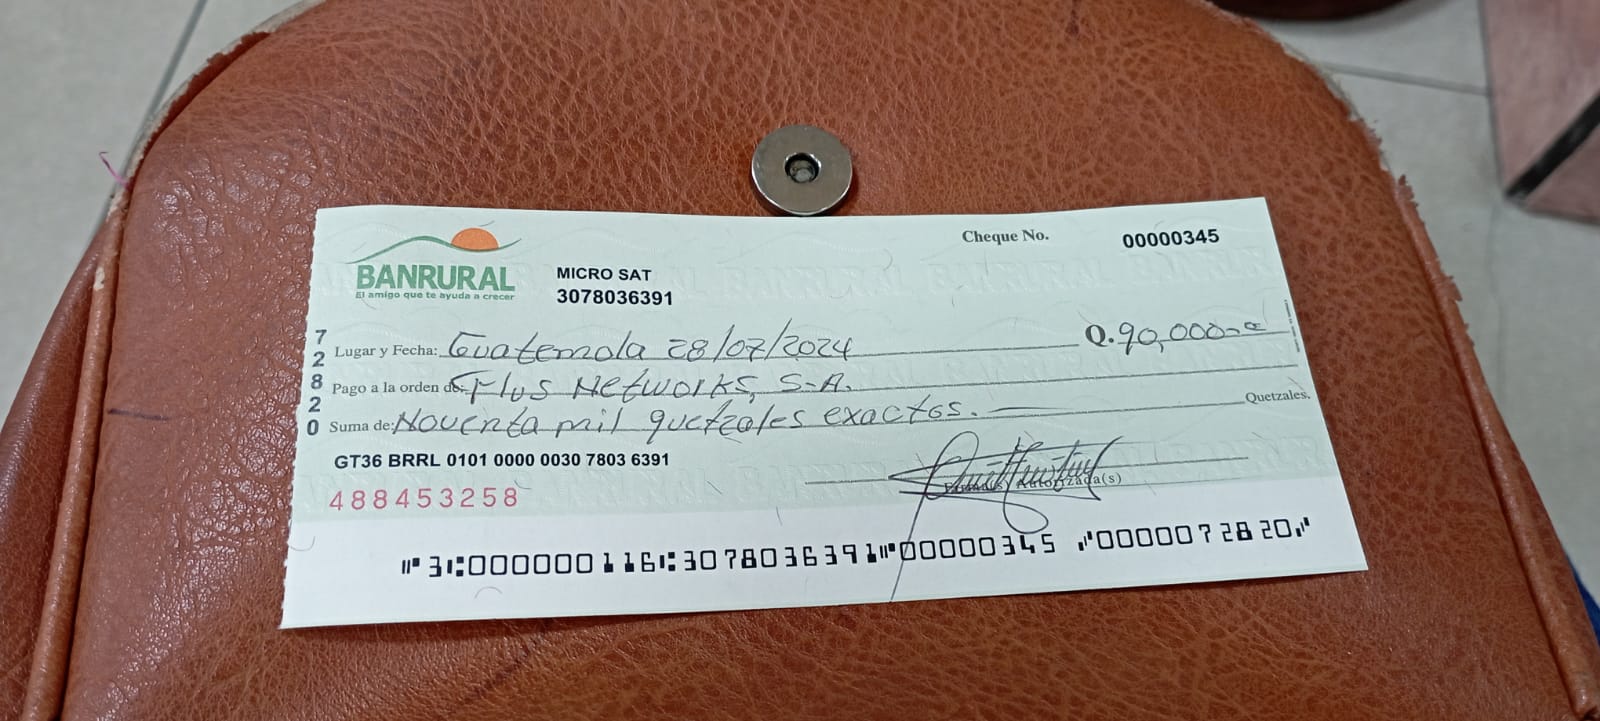 BANRURAL
El amigo que te ayuda a crecer
MICRO SAT
3078036391
Cheque No. 00000345
72820
Lugar y Fecha: Guatemala 28/07/2024 Q. 90,000.00
Pago a la orden de: Flus Networks, S.A.
Suma de: Noventa mil quetzales exactos. Quetzales.
GT36 BRRL 0101 0000 0030 7803 6391
Autorizada(s)
488453258
3 000000116 3078036391 00000345 0000072820